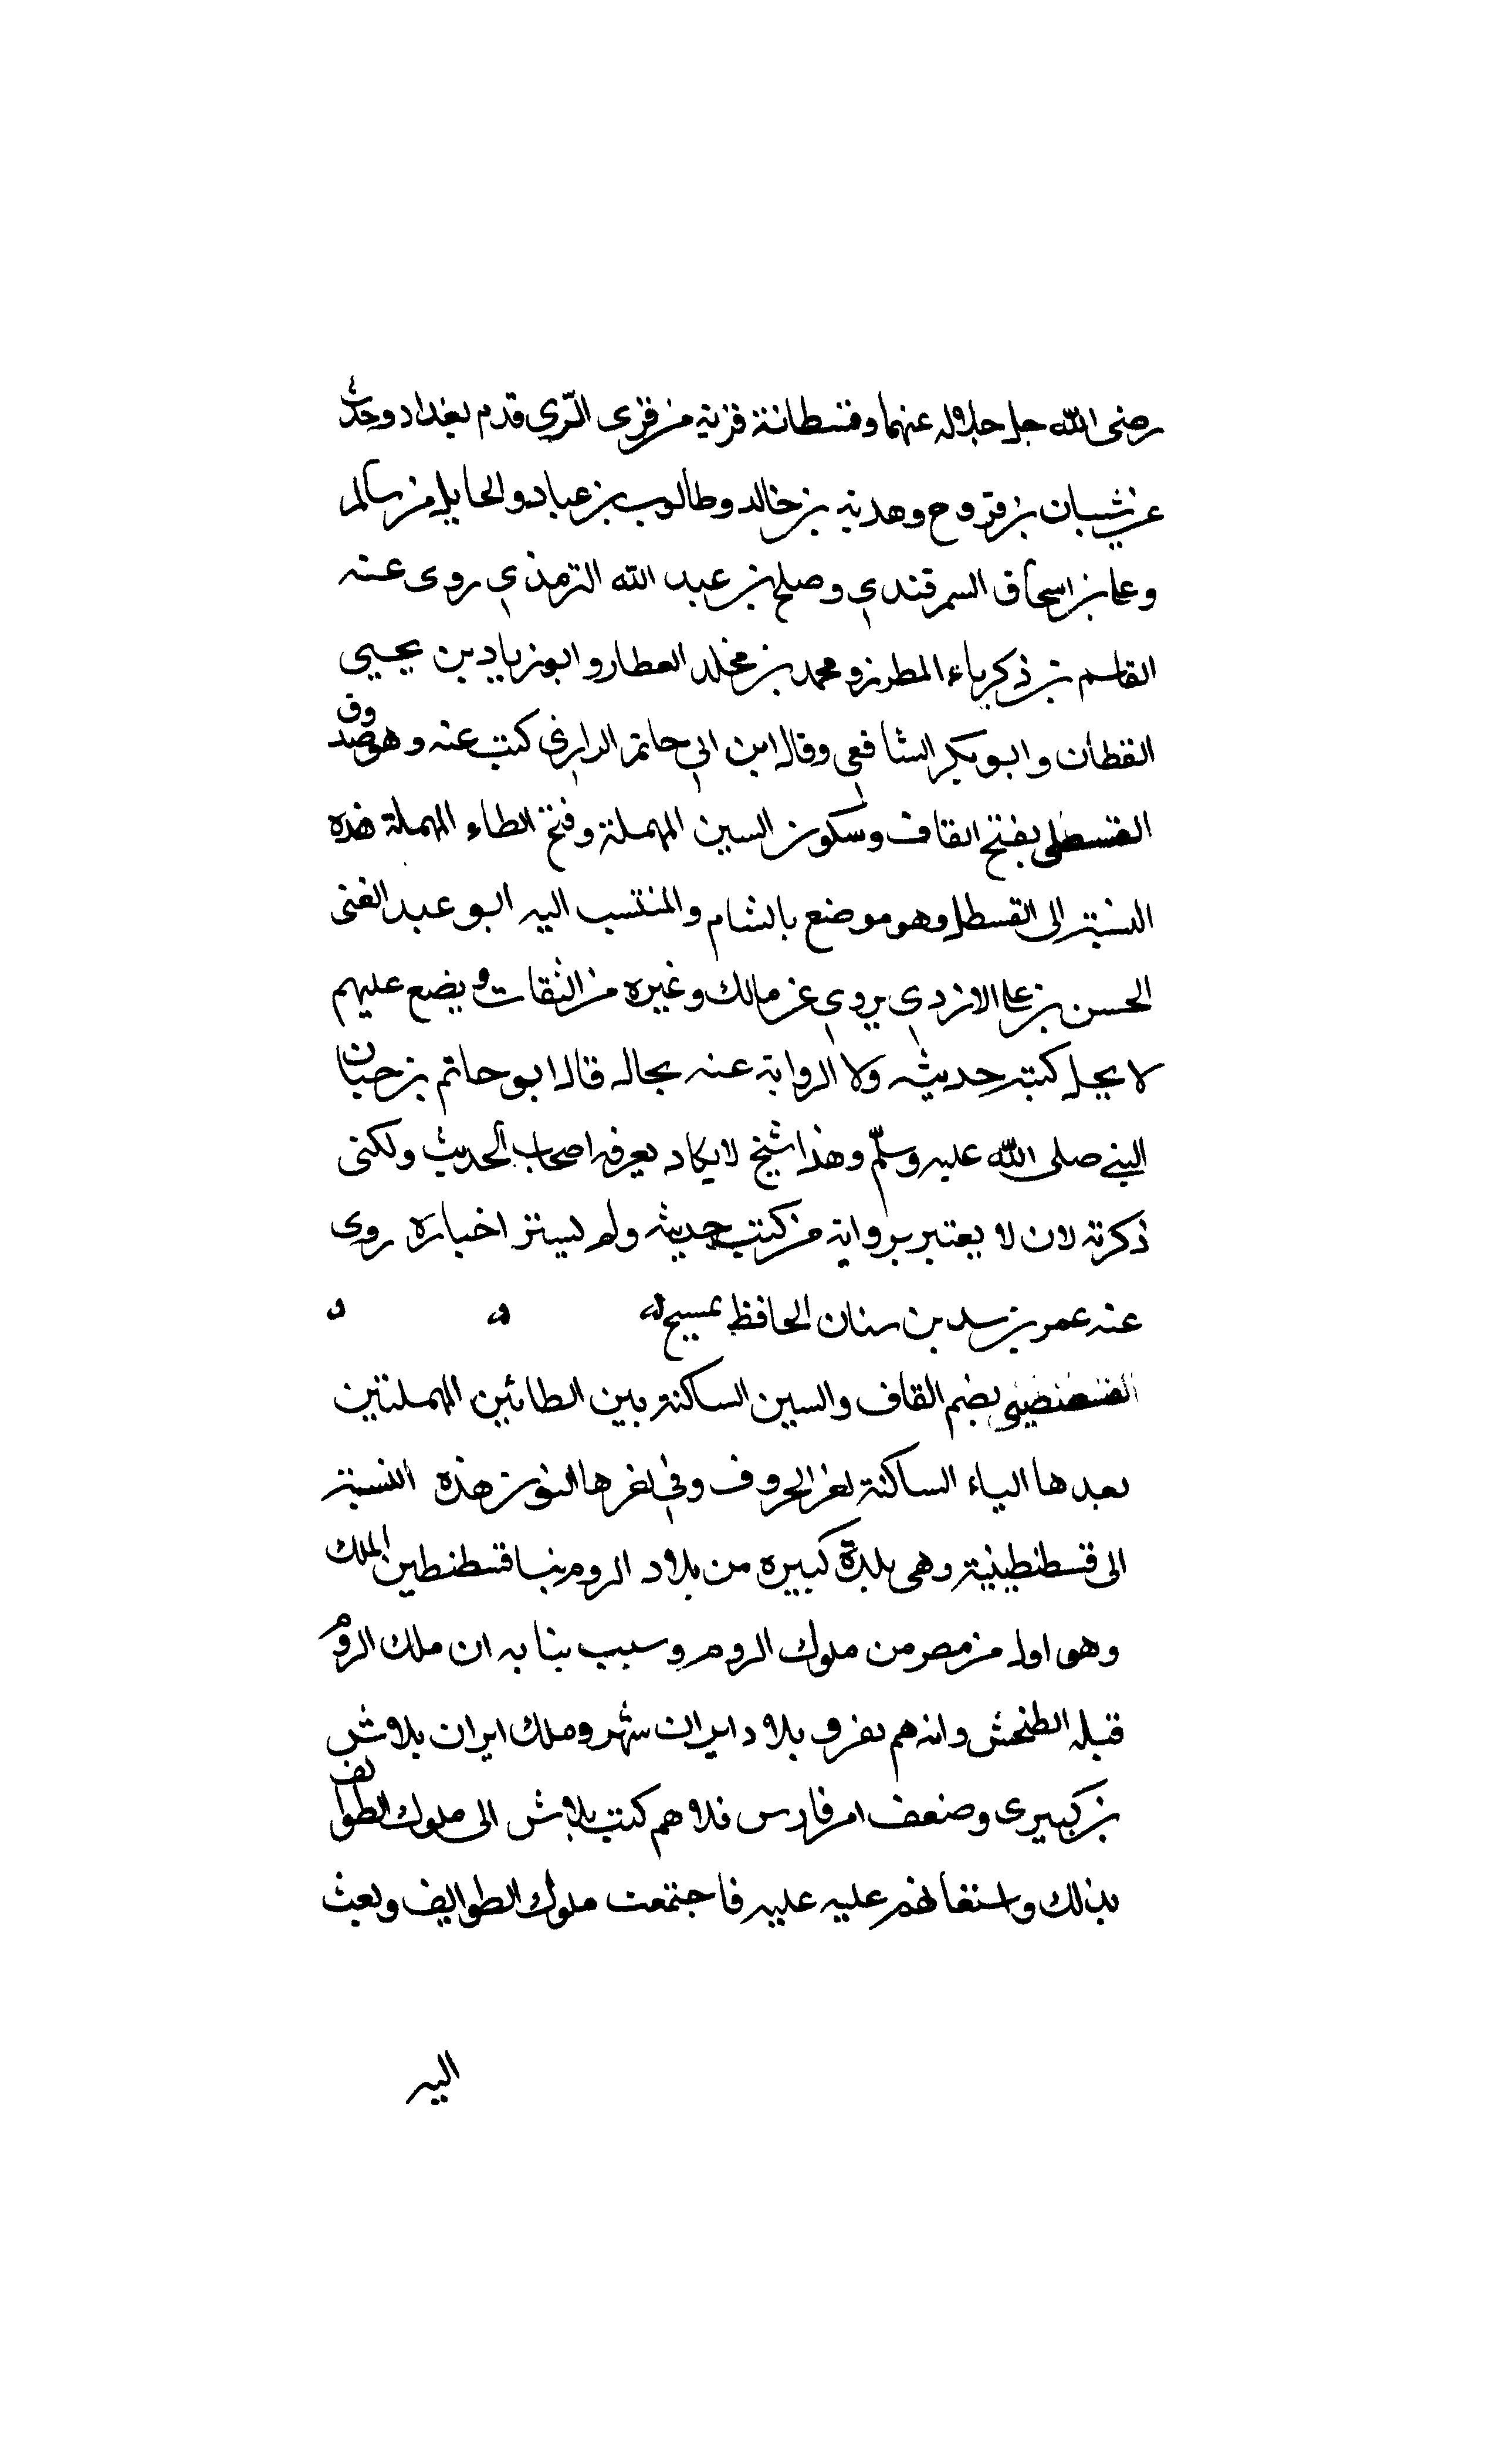 رضى الله جل جلاله عنهما وقسطانة قرية من قرى الرّي قدم بغداد وحدث
عن شيبان بن فروح وهدبة بن خالد وطالوب بن عباد والحا بن سالم
وعلى بن اسحاق السمرقندي وصلح بن عبد الله الترمذي روى عنه
القاسم بن ذكرياء المطرز ومحمد بن مخلد العطار وابو زياد بن يحيى
القطان وابو بكر الشافعى وقال ابن ابي حاتم الرازي كتبت عنه وهو صدوق
القسطلى بفتح القاف وسكون السين المهملة وفتح الطاء المهملة هذه
النسبة الى القسطل وهو موضع بالشام والمنتسب اليه ابو عبد الغنى
الحسن بن على الازدي يروي عن مالك وغيره من الثقات ويضع عليهم
لا يحل كتبة حديثه ولا الرواية عنه بحال قال ابو حاتم بن حبان
النبي صلى الله عليه وسلّم وهذا شيخ لا يكاد يعرفه اصحاب الحديث ولكنى
ذكرته لان لا يعتبر برواية من كتب حديثه ولم يستر اخباره روى
عنه عمر بن سد بن سنان الحافظ بمسيح
القسطنطينى بضم القاف والسين الساكنة بين الطائين المهملتين
بعدها الياء الساكنة اخر الحروف وفي اخرها النون هذه النسبة
الى قسطنطينية وهى بلدة كبيرة من بلاد الروم بنا قسطنطين الملك
وهو اول من مصر من ملوك الروم وسبب بنا به ان ملك الروم
قبله الطنحش وانه هم بغزو بلاد ايران شهر وملك ايران بلاش
بن كبيرى وضعف امر فارس فلا هم كتب بلاش الى ملوك الطوايف
بذلك واستغاثهم عليه عليه فاجتمعت ملوك الطوايف وبعث
اليه